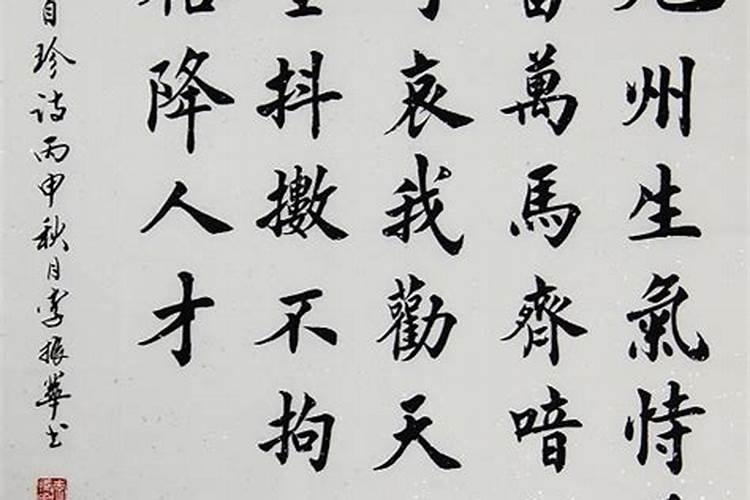 九州生氣恃
雷萬馬齊喑
可哀我勸天
重抖擻不拘
格降人才
自珍詩丙申秋月李振華書